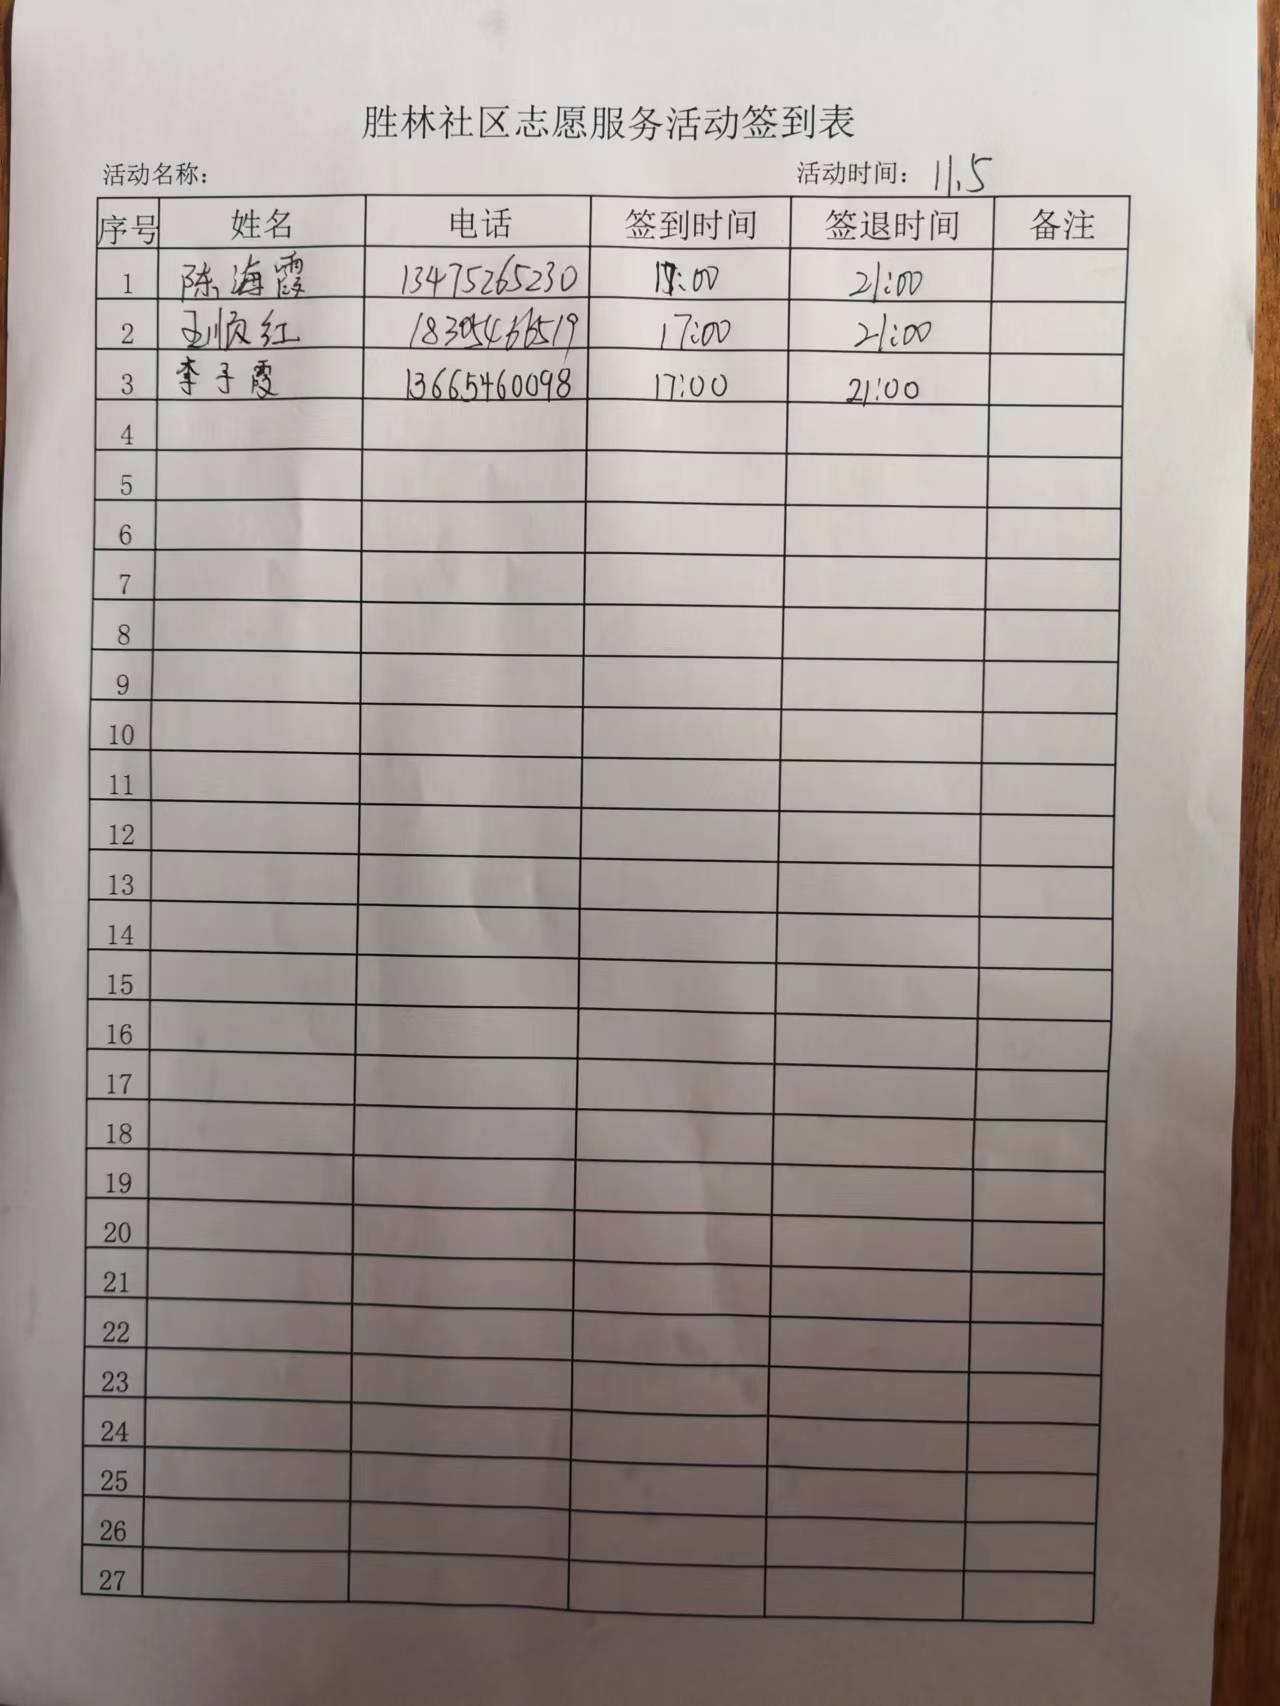 胜林社区志愿服务活动签到表
活动名称： 活动时间： 11.5
序号 姓名 电话 签到时间 签退时间 备注
1 陈海霞 13475265230 17:00 21:00
2 王顺红 18305466519 17:00 21:00
3 李子霞 13665460098 17:00 21:00
4
5
6
7
8
9
10
11
12
13
14
15
16
17
18
19
20
21
22
23
24
25
26
27